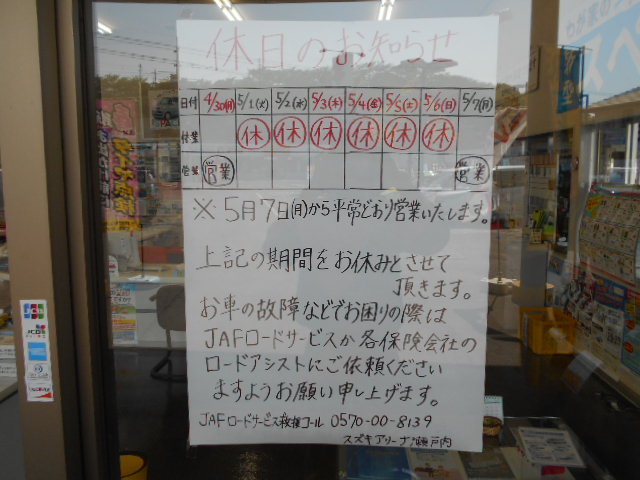 休日のお知らせ
日付 4/30(月) 5/1(火) 5/2(水) 5/3(木) 5/4(金) 5/5(土) 5/6(日) 5/7(月)
休業 休 休 休 休 休 休
営業 営業 営業
※5月7日(月)から平常どおり営業いたします。
上記の期間をお休みとさせて
頂きます。
お車の故障などでお困りの際は
JAFロードサービスか各保険会社の
ロードアシストにご依頼ください
ますようお願い申し上げます。
JAFロードサービス救援コール 0570-00-8139
スズキアリーナ瀬戸内
JCB